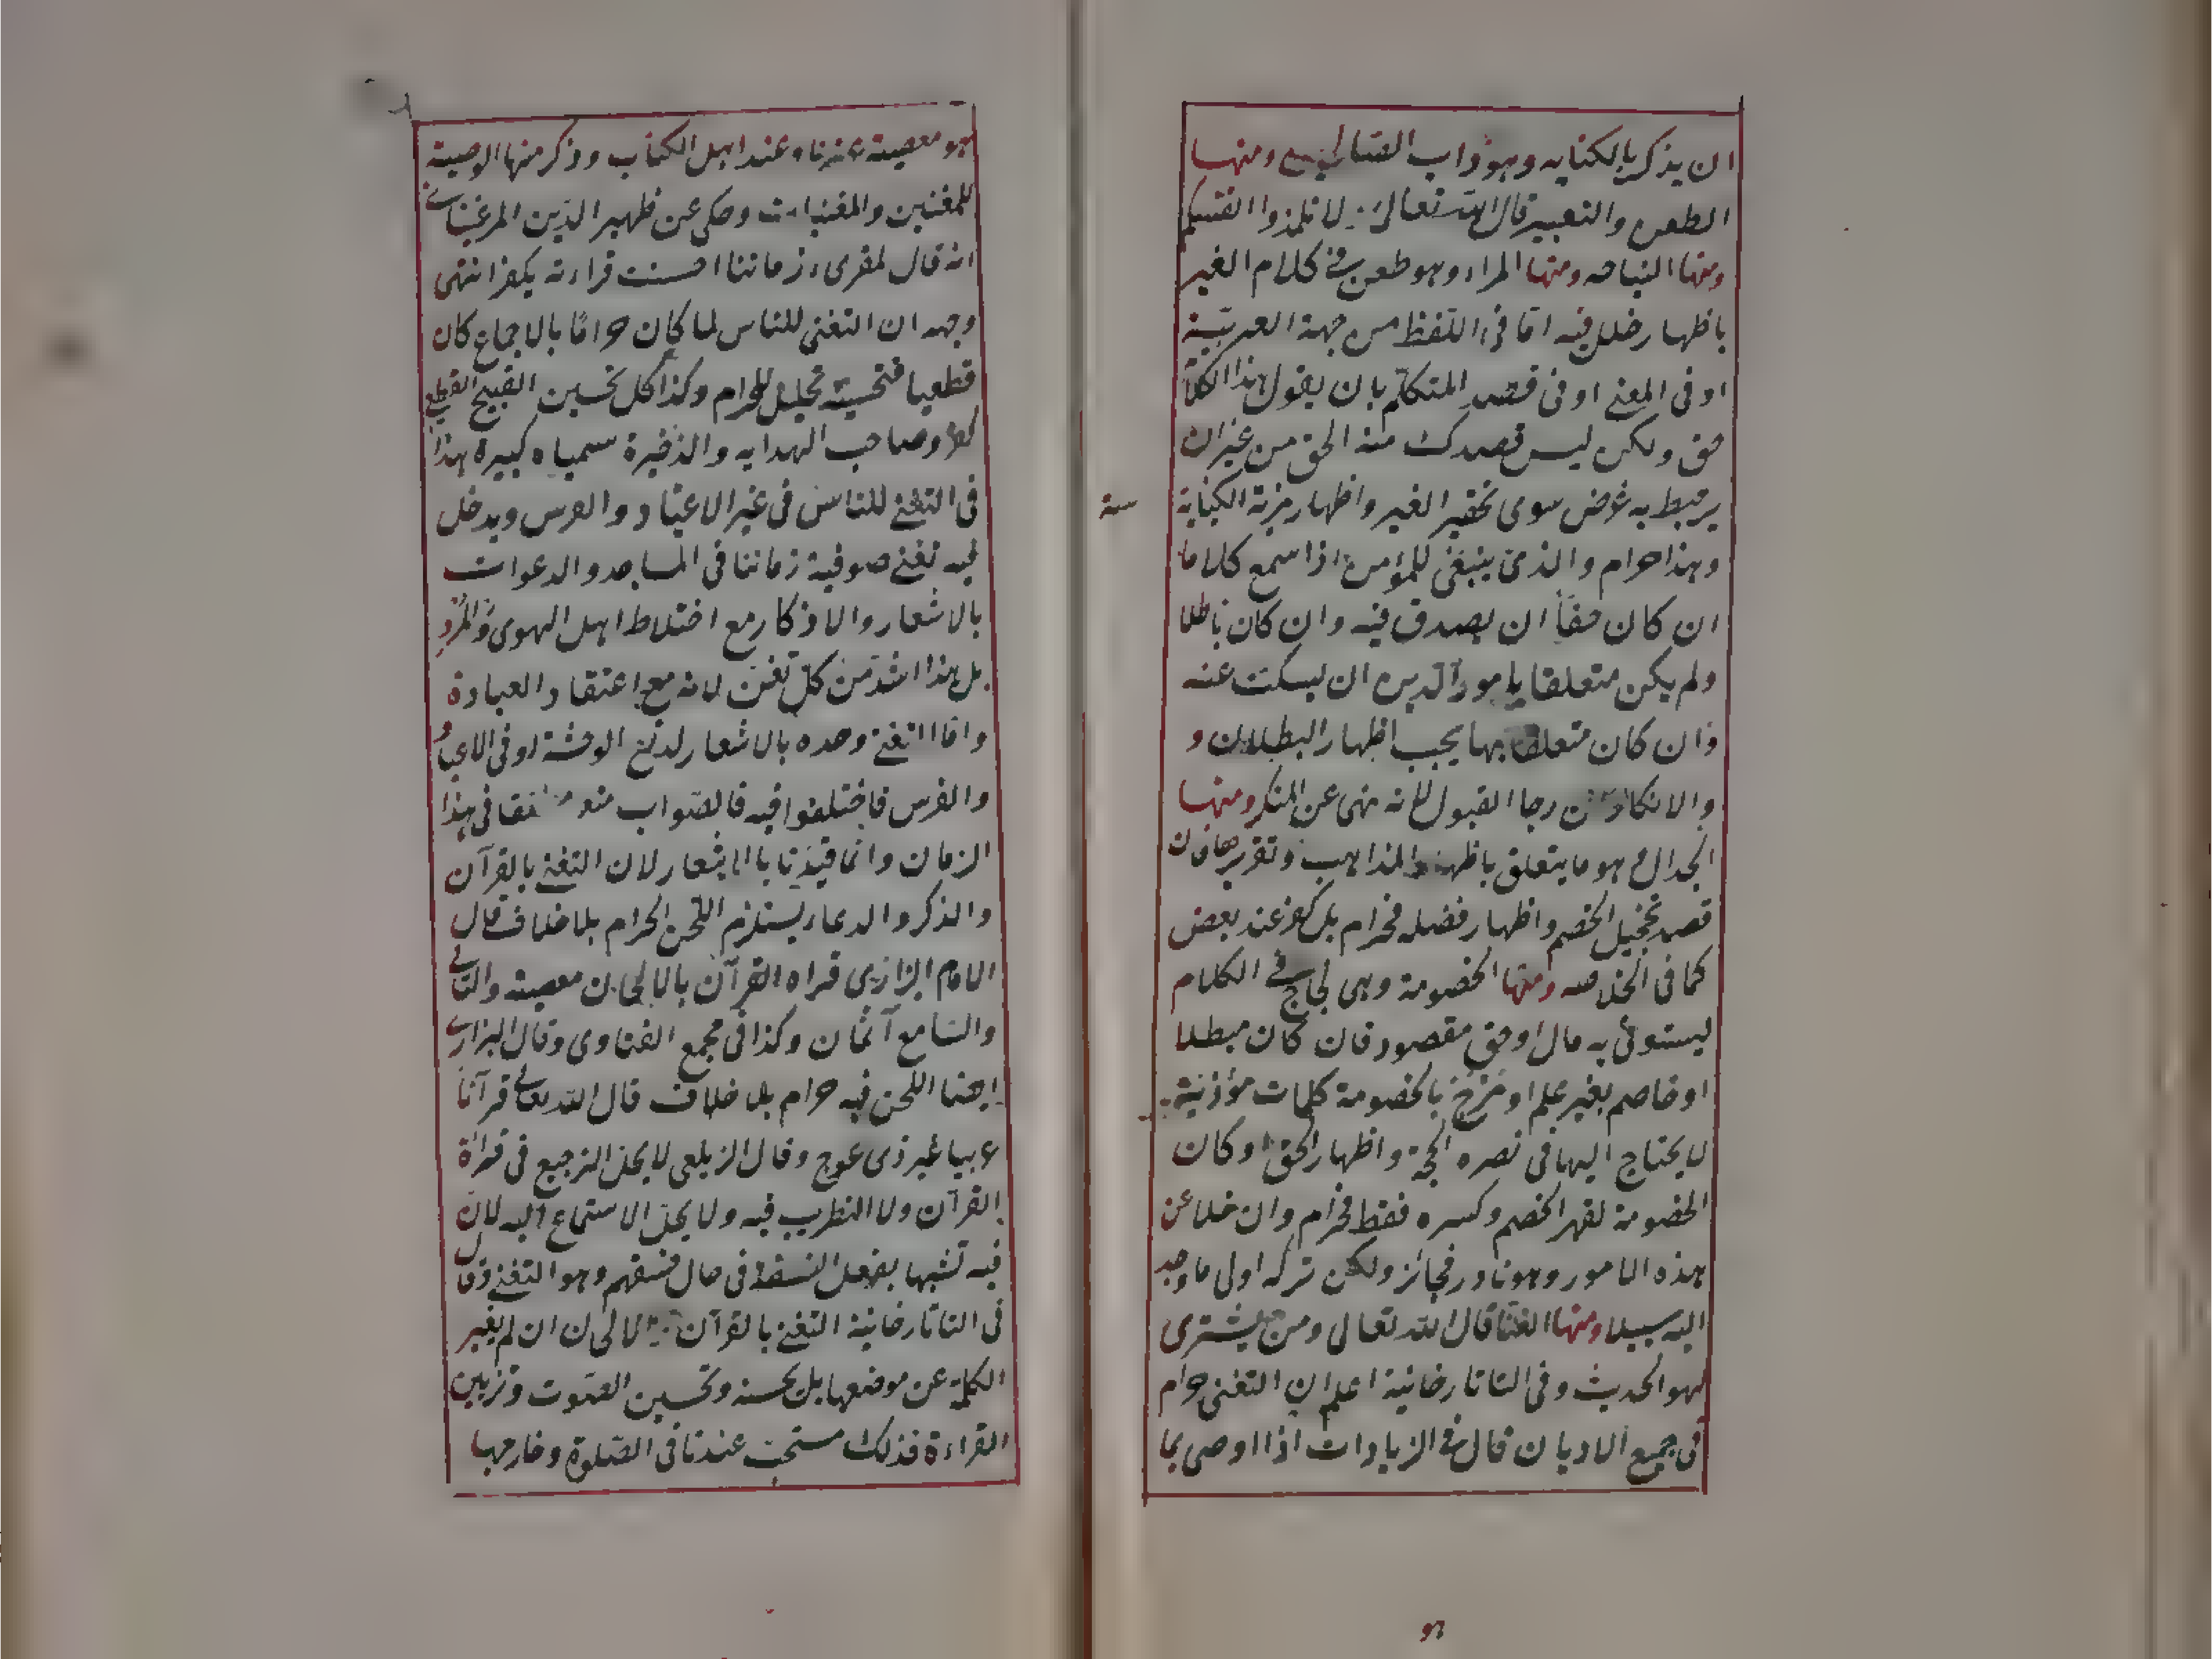 ان يذكر بالكنايه وهو داب القتا ومنها
الطعن والتعيير قال الله تعالى لا تلمزوا انفسكم
ومنها النياحه ومنها المراء وهو طعن في كلام الغير
باظهار خلل فيه اما في اللفظ من جهة العربية
او في المعنى او في قصد المتكلم بان يقول هذا الكلام
حق ولكن ليس قصدك منه الحق من غير ان
يرتبط به غرض سوى تحقير الغير واظهار مزية الكياسة
وهذا حرام والذى ينبغي للمؤمن اذا سمع كلاما
ان كان حقا ان يصدق فيه وان كان باطلا
ولم يكن متعلقا بامور الدين ان يسكت عنه
وان كان متعلقا بها يجب اظهار البطلان و
والانكار ان رجا القبول لانه نهى عن المنكر ومنها
الجدال هو ما يتعلق باظهار المذاهب وتقريرها فان
قصد تخجيل الخصم واظهار فضله فحرام بل كفر عند بعض
كما في الخلاصه ومنها الخصومة وهي لجاج في الكلام
ليستوفى به مال او حق مقصود فان كان مبطلا
او خاصم بغير علم او مزج بالخصومة كلمات مؤذية
لا يحتاج اليها في نصره الحجة واظهار الحق او كان
الخصومة لقهر الخصم وكسره فقط فحرام وان خلا عن
هذه الامور وهو نادر فجائز ولكن تركه اولى ما وجد
اليه سبيلا ومنها الغنا قال الله تعالى ومن يشترى
لهو الحديث وفي التاتارخانية اعلم ان التغنى حرام
في جميع الاديان قال في الزيادات اذا اوصى بما
هو
هو معصية عندنا وعند اهل الكتاب وذكر منها الوصية
للمغنين والمغنيات وحكى عن ظهير الدين المرغيناني
انه قال لمقرى زماننا احسنت قراءته يكفر انتهى
وجهه ان التغنى للناس لما كان حراما بالاجماع كان
قطعيا فتحسينه تحليل للحرام وكذا كل تحسين القبيح القطعي
كفر وصاحب الهدايه والذخيرة سمياه كبيرة هذا
في التغني للناس في غير الاعياد والعرس ويدخل
فيه تغني صوفية زماننا في المساجد والدعوات
بالاشعار والاذكار مع اختلاط اهل الهوى والمرد
بل هذا اشد من كل تغن لانه مع اعتقاد العبادة
واما التغني وحده بالاشعار لدفع الوحشة او في الاعياد
والعرس فاختلفوا فيه فالصواب منعه في هذا
الزمان وانما قيدنا بالاشعار لان التغني بالقرآن
والذكر والدعاء يستلزم اللحن الحرام بلا خلاف قال
الامام البزازي قراه القرآن بالالحان معصية والتالي
والسامع آثمان وكذا في مجمع الفتاوى وقال البزازي
ايضا اللحن فيه حرام بلا خلاف قال الله تعالى قرآنا
عربيا غير ذى عوج وقال الزيلعي لا يحل الترجيع في قراة
القرآن ولا التطريب فيه ولا يحل الاستماع اليه لان
فيه تشبها بفعل الفسقة في حال فسقهم وهو التغني وقال
في التاتارخانية التغني بالقرآن الالحان ان لم يغير
الكلمة عن موضعها بل يحسنه وتحسين الصوت وتزيين
القراءة فذلك مستحب عندنا في الصلوة وخارجها